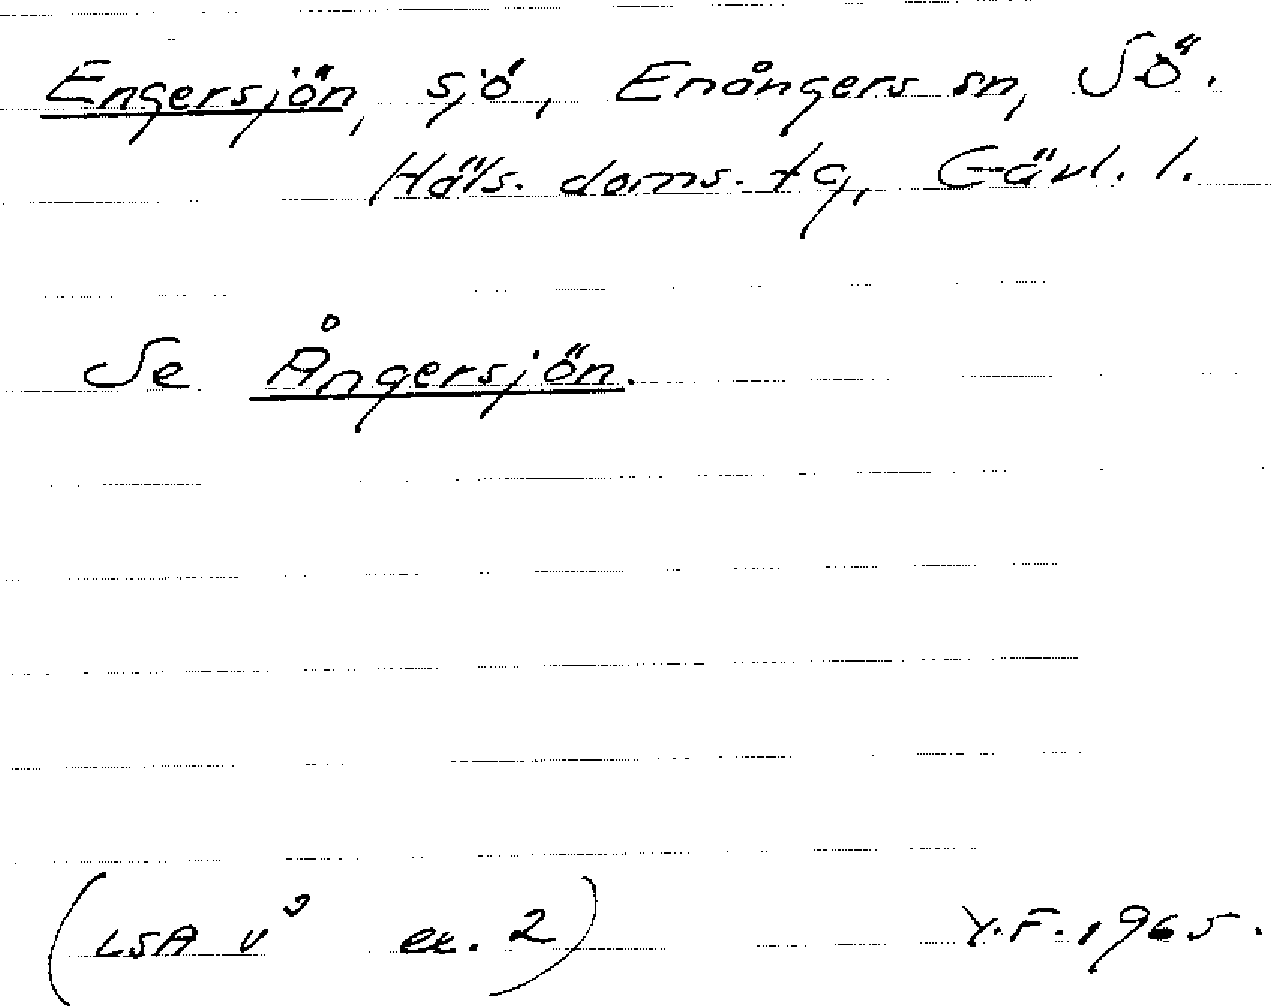 Engersjön, sjö, Enångers sn, Sö.
Häls. doms. tg, Gävl. l.
Se Ångersjön.
(LSA v⁹ ex. 2) Y.F. 1965.